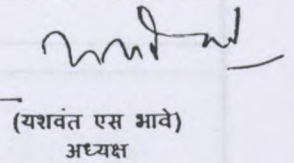 (यशवंत एस भावे)
अध्यक्ष